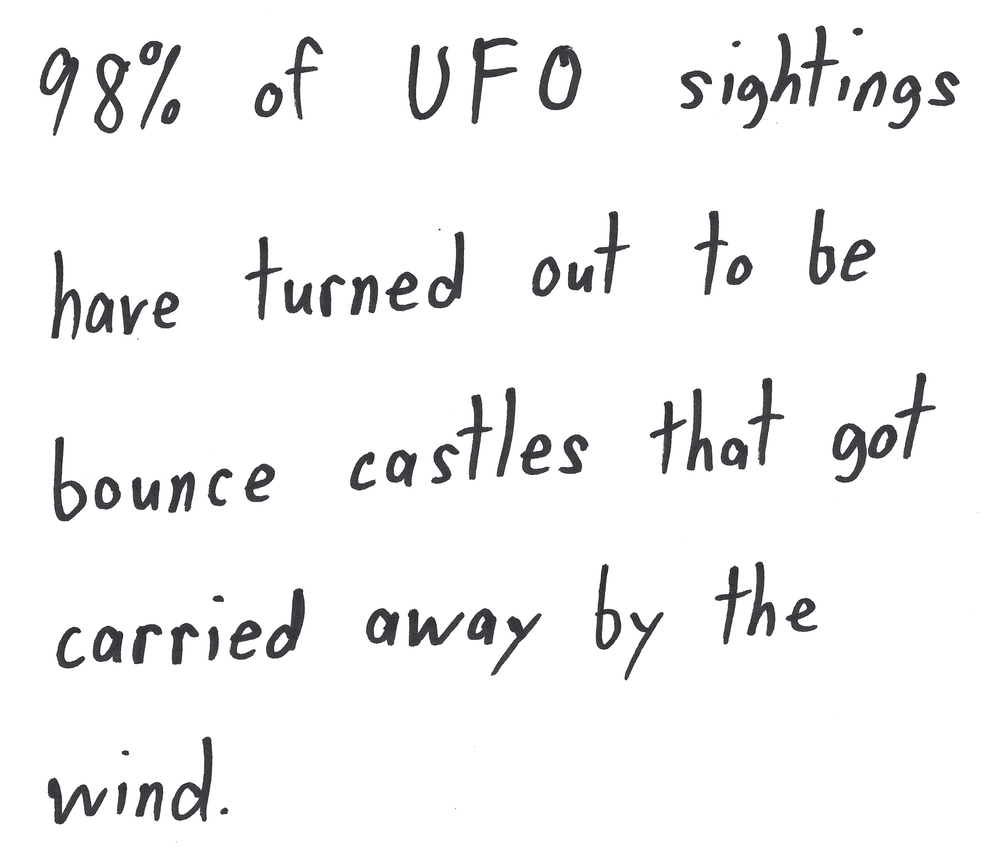 98% of UFO sightings
have turned out to be
bounce castles that got
carried away by the
wind.